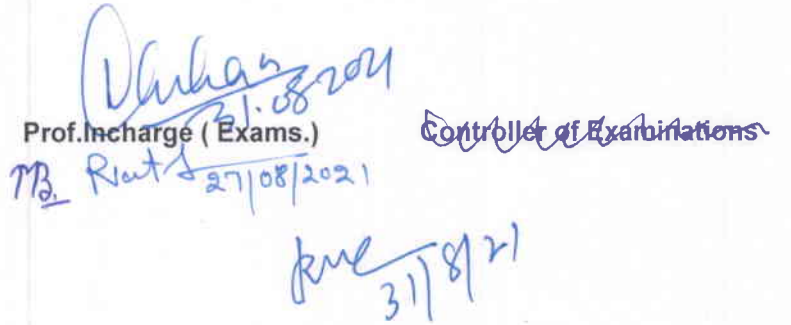 31.08.2021
Prof.Incharge ( Exams.)
Controller of Examinations
27/08/2021
31/8/21